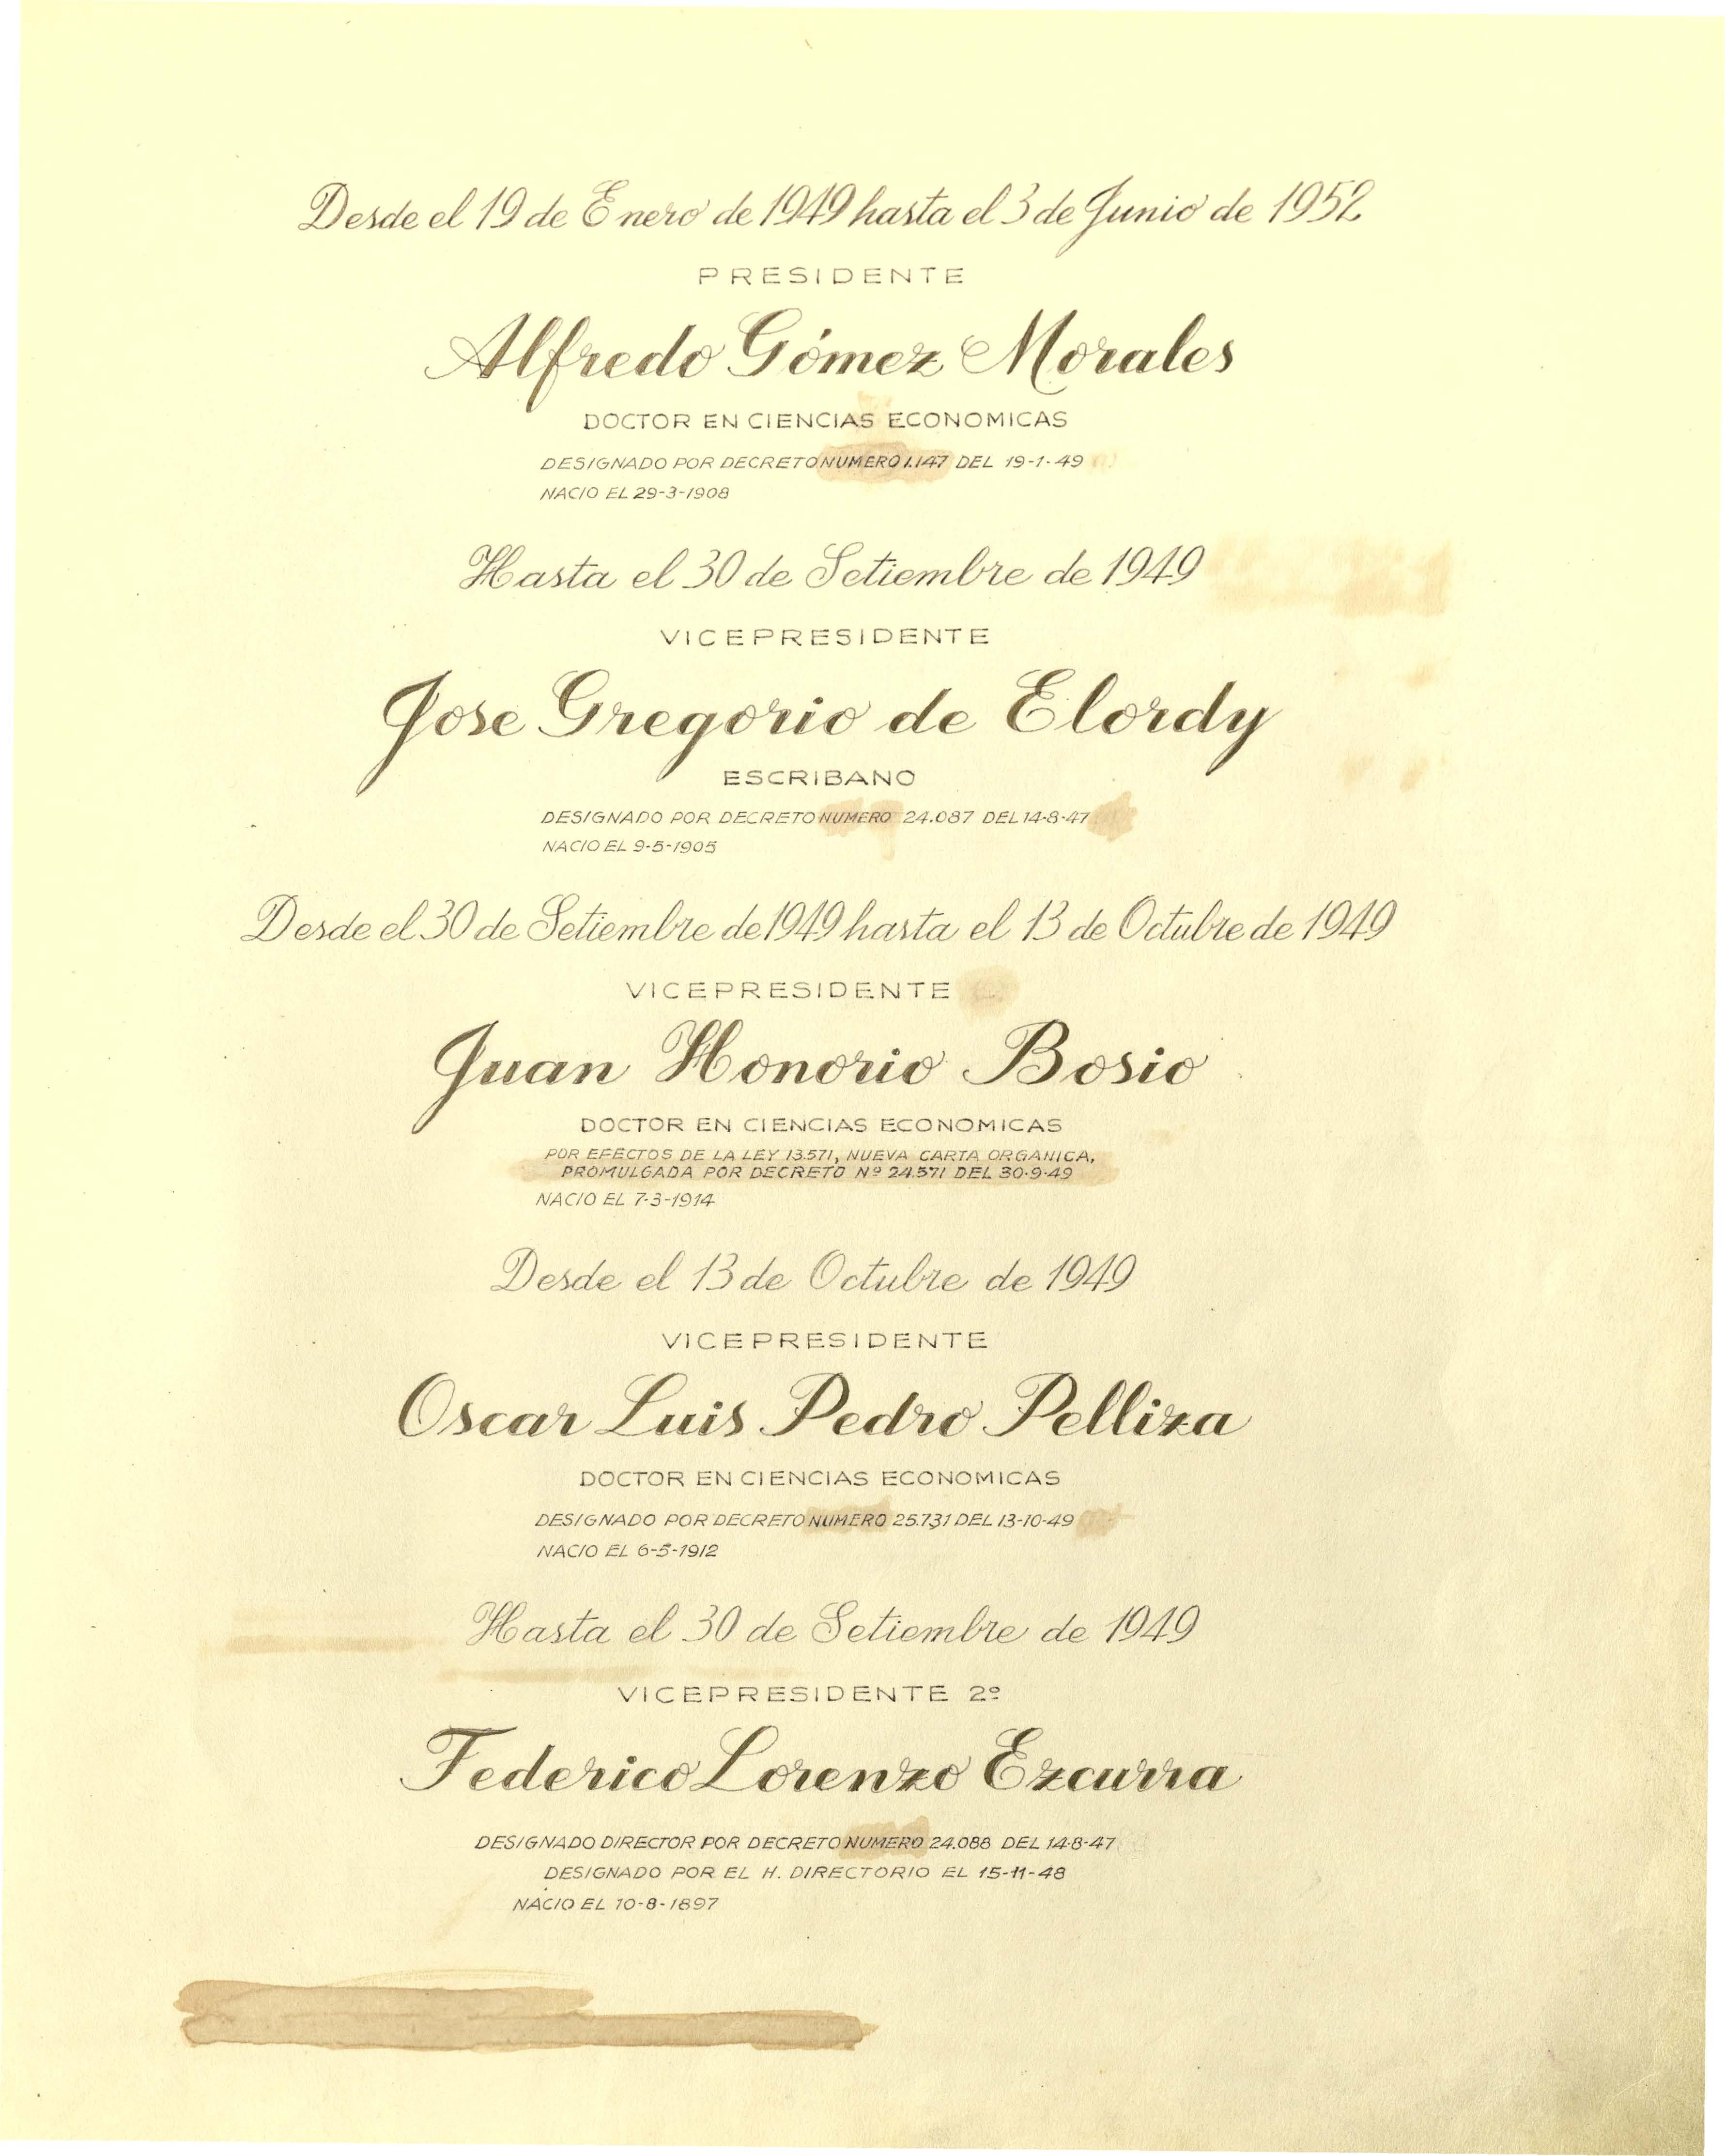 Desde el 19 de Enero de 1949 hasta el 3 de Junio de 1952
PRESIDENTE
Alfredo Gómez Morales
DOCTOR EN CIENCIAS ECONOMICAS
DESIGNADO POR DECRETO NUMERO 1.147 DEL 19-1-49
NACIO EL 29-3-1908
Hasta el 30 de Setiembre de 1949
VICEPRESIDENTE
Jose Gregorio de Elordy
ESCRIBANO
DESIGNADO POR DECRETO NUMERO 24.087 DEL 14-8-47
NACIO EL 9-5-1905
Desde el 30 de Setiembre de 1949 hasta el 13 de Octubre de 1949
VICEPRESIDENTE
Juan Honorio Bosio
DOCTOR EN CIENCIAS ECONOMICAS
POR EFECTOS DE LA LEY 13.571, NUEVA CARTA ORGANICA,
PROMULGADA POR DECRETO Nº 24.571 DEL 30-9-49
NACIO EL 7-3-1914
Desde el 13 de Octubre de 1949
VICEPRESIDENTE
Oscar Luis Pedro Pelliza
DOCTOR EN CIENCIAS ECONOMICAS
DESIGNADO POR DECRETO NUMERO 25.731 DEL 13-10-49
NACIO EL 6-5-1912
Hasta el 30 de Setiembre de 1949
VICEPRESIDENTE 2º
Federico Lorenzo Ezcurra
DESIGNADO DIRECTOR POR DECRETO NUMERO 24.088 DEL 14-8-47
DESIGNADO POR EL H. DIRECTORIO EL 15-11-48
NACIO EL 10-8-1897